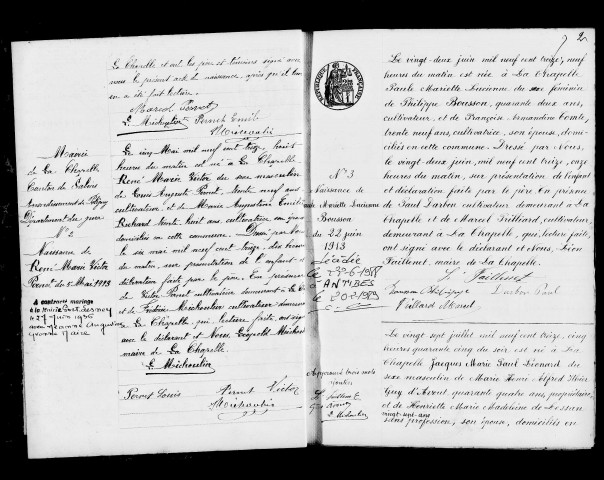 La Chapelle et ont les père et témoins signé avec
nous le présent acte de naissance, après que il leur
en a été fait lecture.
Marcel Pernet
L. Michoulier Pernet Emile
Mairie
de La Chapelle
Canton de Salins
Arrondissement de Poligny
Département du Jura
N° 2
Naissance de
René Marie Victor
Pernet du 5 Mai 1913
A contracté mariage
à
le 27 Juin 1936
avec Jeanne Augustine
Yvonne
Le cinq Mai mil neuf cent treize, huit
heures du matin est né à La Chapelle
René Marie Victor du sexe masculin
de Louis Auguste Pernet, trente neuf ans
cultivateur, et de Marie Augustine Emilie
Richard, trente huit ans, cultivatrice, son épouse
domiciliés en cette commune. Dressé par Nous
le six mai mil neuf cent treize, dix heures
du matin, sur présentation de l'enfant et
déclaration faite par le père. En présence
de Victor Pernet cultivateur demeurant à La Ch
et de Frédéric Michoulier cultivateur demeurant
à La Chapelle, qui, lecture faite, ont signé
avec le déclarant et Nous Léopold Michoulier
maire de La Chapelle.
L. Michoulier
Pernet Louis Pernet Victor
2
RÉPUBLIQUE FRANÇAISE
N° 3
Naissance de
Paule Mariette Lucienne
Bousson
du 22 juin
1913
Décédée
à ANTIBES
le
Approuvé trois mots
rayés
Le vingt-deux juin mil neuf cent treize, neuf
heures du matin est née à La Chapelle
Paule Mariette Lucienne du sexe féminin
de Philippe Bousson, quarante deux ans,
cultivateur, et de Françoise Armandine Comte,
trente neuf ans, cultivatrice, son épouse, domi-
ciliés en cette commune. Dressé par Nous,
le vingt-deux juin, mil neuf cent treize, onze
heures du matin, sur présentation de l'enfant
et déclaration faite par le père. En présence
de Paul Darbon cultivateur demeurant à La
Chapelle et de Marcel Trilliard, cultivateur
demeurant à La Chapelle, qui, lecture faite,
ont signé avec le déclarant et Nous, Léon
Faillenet, maire de La Chapelle.
L. Faillenet
Bousson Philippe Darbon Paul
Marcel
Le vingt sept juillet mil neuf cent treize, cinq
heures quarante cinq du soir est né à La
Chapelle Jacques Marie Paul Léonard du
sexe masculin de Marie Henri Alfred Olivier
Guy d'Avout, quarante quatre ans, propriétaire,
et de Henriette Marie Madeleine de Lossen
vingt-sept ans
sans profession, son épouse, domiciliés en